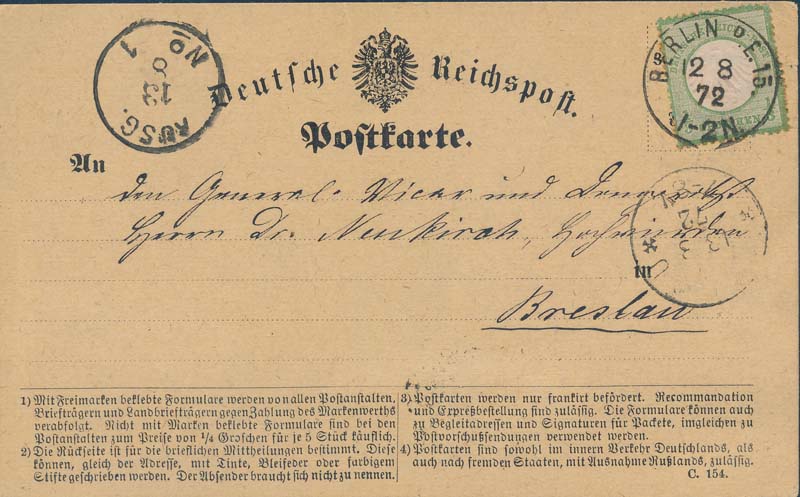 Deutsche Reichspost.
Postkarte.
BERLIN P.E. 15.
12 8
72
1-2N.
AUSG.
No 1
13
8
An
den General-Vicar und
Herrn Dr. Neukirch, Hochwürden
in
Breslau
1) Mit Freimarken beklebte Formulare werden von allen Postanstalten,
Briefträgern und Landbriefträgern gegen Zahlung des Markenwerths
verabfolgt. Nicht mit Marken beklebte Formulare sind bei den
Postanstalten zum Preise von ¼ Groschen für je 5 Stück käuflich.
2) Die Rückseite ist für die brieflichen Mittheilungen bestimmt. Diese
können, gleich der Adresse, mit Tinte, Bleifeder oder farbigem
Stifte geschrieben werden. Der Absender braucht sich nicht zu nennen.
3) Postkarten werden nur frankirt befördert. Recommandation
und Expreßbestellung sind zulässig. Die Formulare können auch
zu Begleitadressen und Signaturen für Packete, imgleichen zu
Postvorschußsendungen verwendet werden.
4) Postkarten sind sowohl im innern Verkehr Deutschlands, als
auch nach fremden Staaten, mit Ausnahme Rußlands, zulässig.
C. 154.